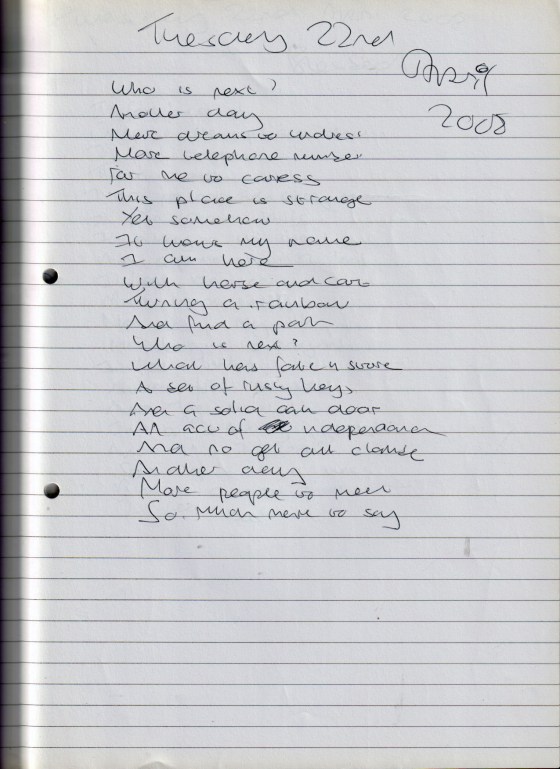 Tuesday. 22nd
April
2008
Who is next?
Another day
More dreams to undress
More telephone number
for me to caress
This place is strange
Yet somehow
It knows my name
I am here
With horse and cart
Turning a rainbow
And find a path
Who is next?
What has fate in store
A set of rusty keys
And a solid oak door
An act of independance
And no get out clause
Another day
More people to meet
So. Much more to say